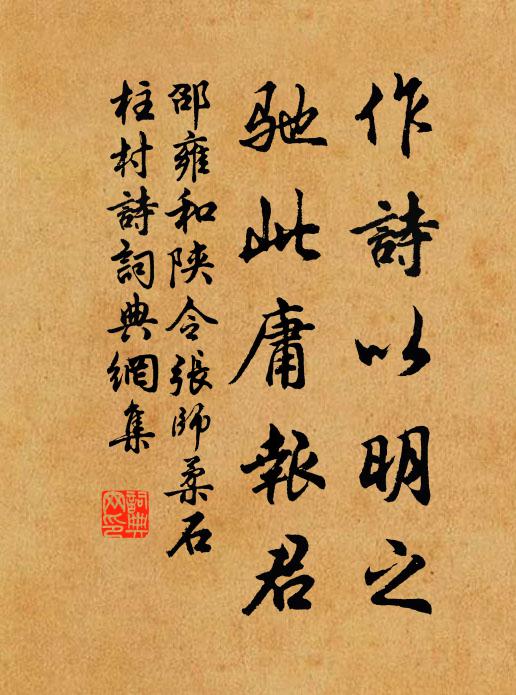 作詩以明之
馳此庸報君
邵雍和陝令張師柔石
柱村詩詞典網集
詞典網印